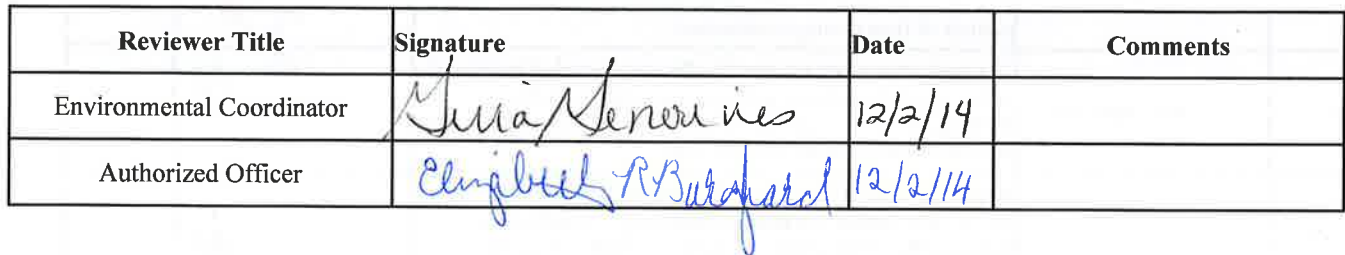 Reviewer Title Signature Date Comments
Environmental Coordinator 12/2/14
Authorized Officer Elizabeth R Burghard 12/2/14